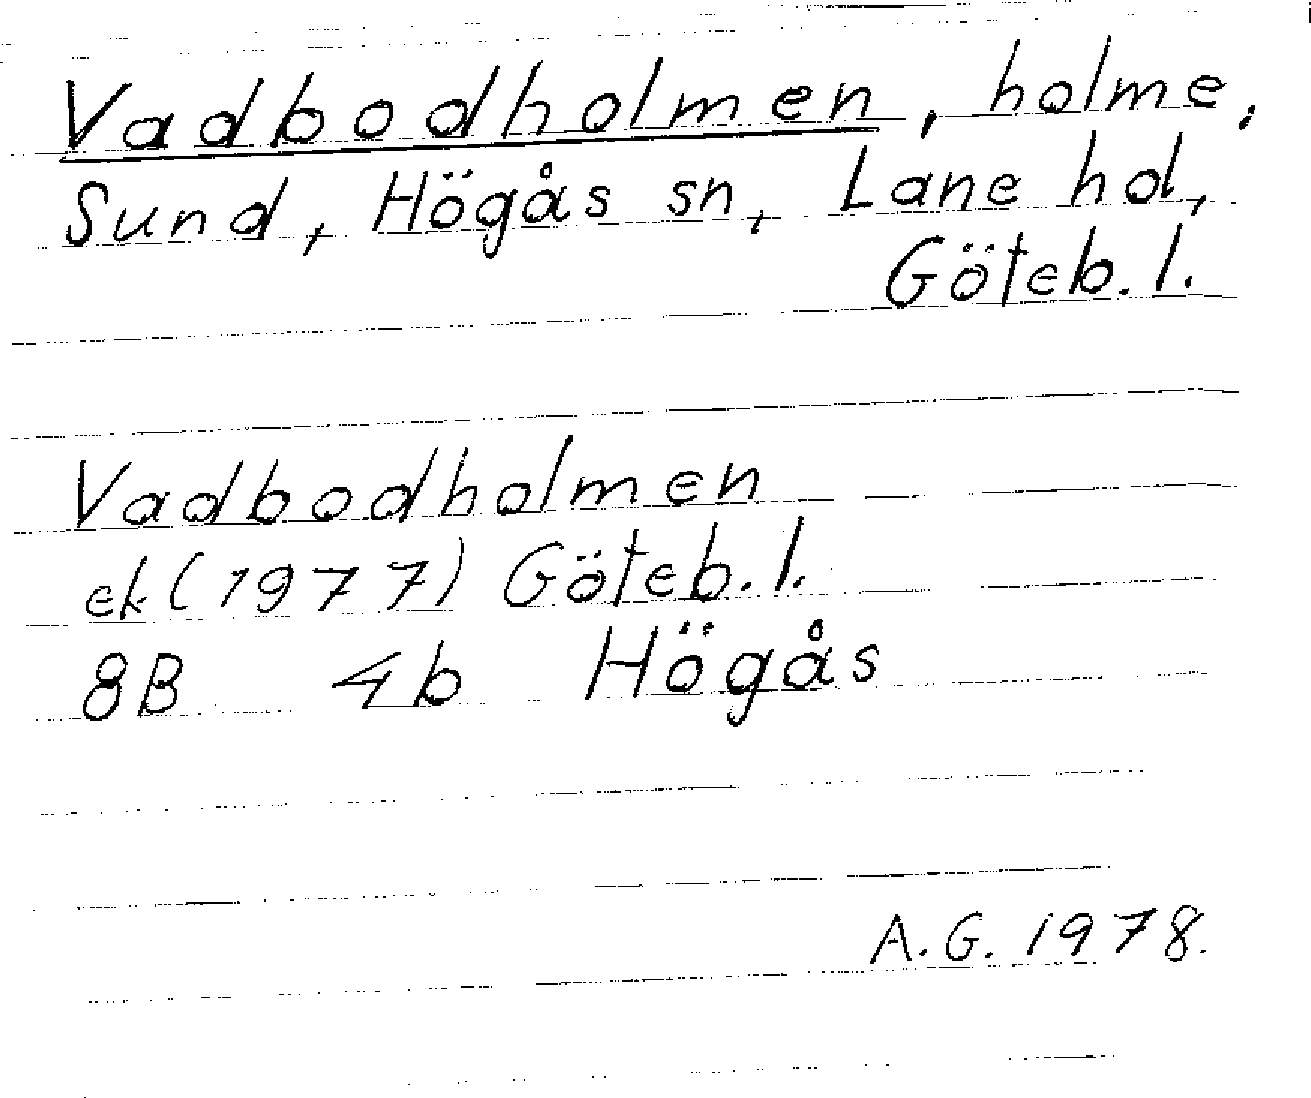 Vadbodholmen, holme,
Sund, Högås sn, Lane hd,
Göteb. l.
Vadbodholmen
ek (1977) Göteb. l.
8B 4b Högås
A.G. 1978.